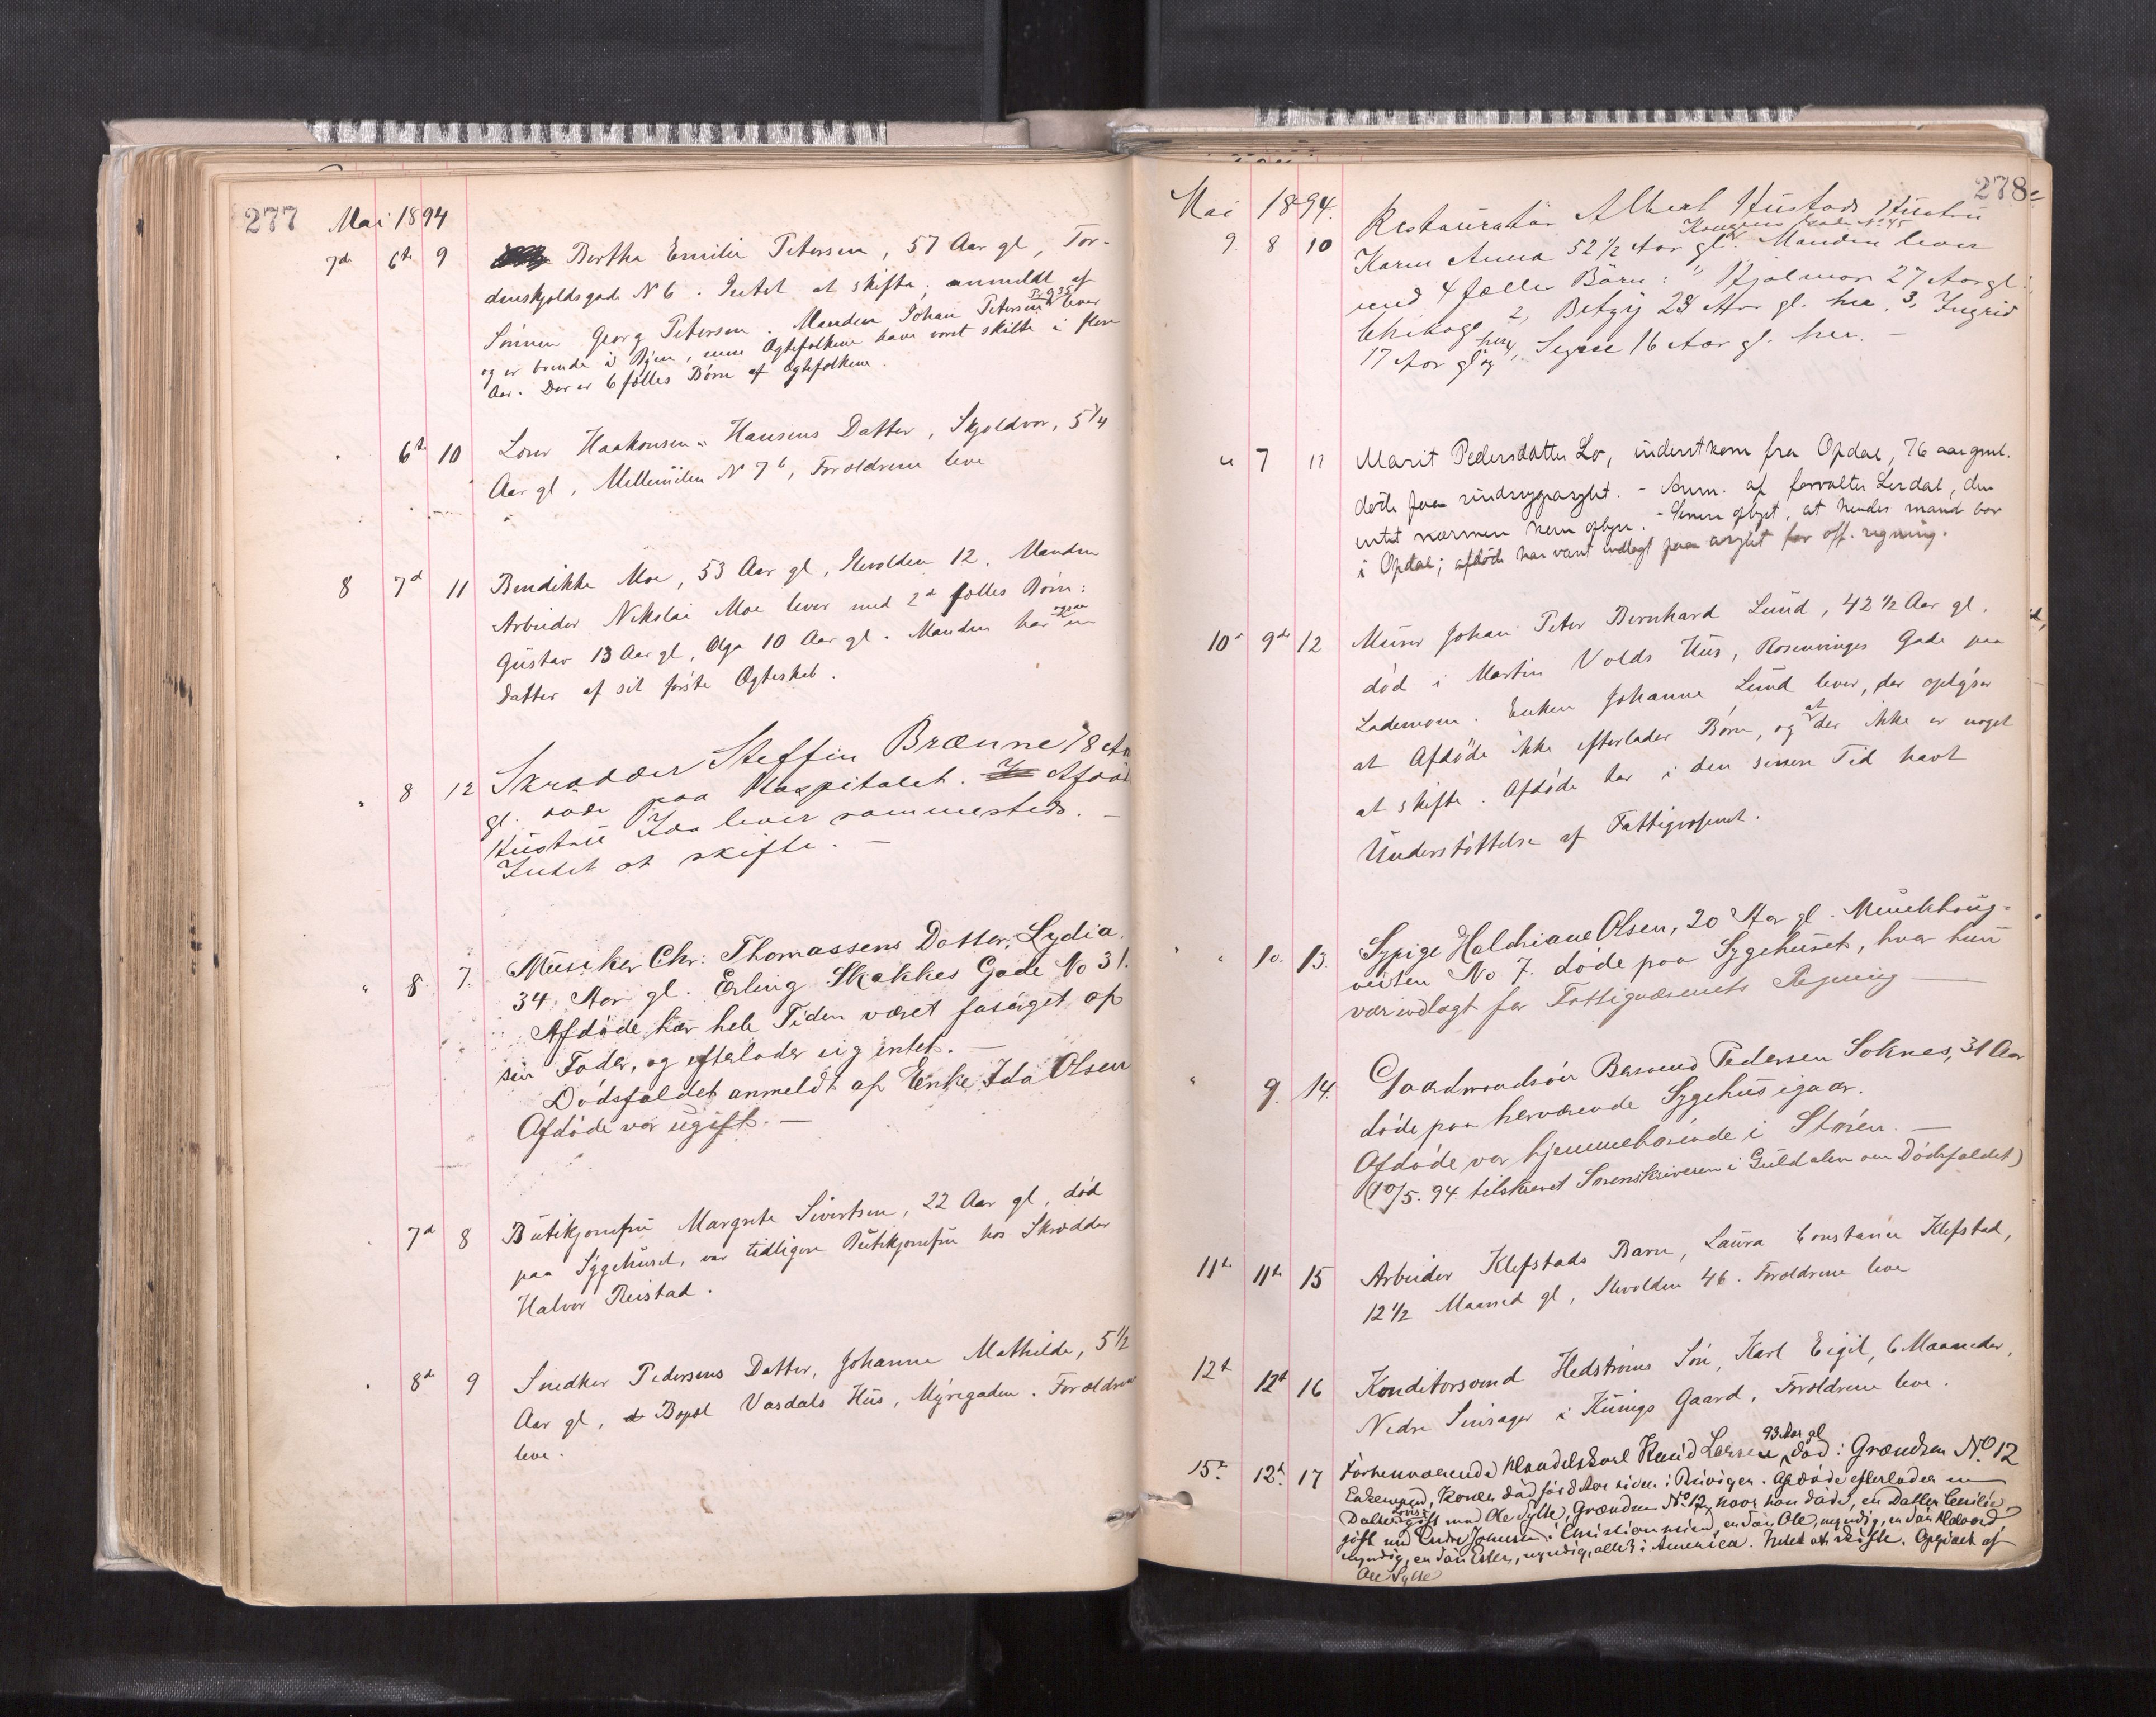 277 Mai 1894
7de 6te 9 Bertha Emilie Petersen, 57 Aar gl, Tor-
denskjoldsgade N 6. Intet at skifte; anmeldt af
Sønnen Georg Petersen. Manden Johan Petersen lever
og er boende i Byen, men Ægtefolkene have været skilte i flere
Aar. Der er 6 fælles Børn af Ægtefolkene.
6te 10 Haakonsen Hansens Datter, Skjoldvor, 5 1/4
Aar gl, Mellemilen N 7 b, Forældrene leve
8 7de 11 Bendikke Moe, 53 Aar gl, Ilevolden 12. Manden
Arbeider Nikolai Moe lever med 2de fælles Børn:
Gustav 13 Aar gl, Olga 10 Aar gl. Manden har ogsaa en
Datter af sit første Ægteskab.
" 8 12 Skrædder Steffen Brænne 78 Aar
gl. døde paa Hospitalet. Afdøde
Hustru Ida lever sammesteds. -
Intet at skifte. -
" 8 7. Musiker Chr: Thomassens Datter, Lydia.
34. Aar gl. Erling Skakkes Gade No 31.
Afdøde har hele Tiden været forsørget af
sin Fader, og efterlader sig intet. -
Dødsfaldet anmeldt af Enke Ida Olsen
Afdøde var ugift. -
7de 8 Butikjomfru Margrete Sivertsen, 22 Aar gl, død
paa Sygehuset, var tidligere Butikjomfru hos Skrædder
Halvor Reistad.
8de 9 Snedker Pedersens Datter, Johanne Mathilde, 5 1/2
Aar gl, Bopæl Vasdals Hus, Myregaden. Forældrene
leve.
278
Mai 1894.
9. 8 10 Restauratør Albert Hustads Hustru
Karen Anna 52 1/2 Aar gl. Kongens Gade No 45 Manden lever
med 4 fælles Børn: 1, Hjalmar 27 Aar gl.
Chikago 2, Betzy 28 Aar gl. her. 3, Ingrid
17 Aar gl her og 4, Signe 16 Aar gl. her. -
" 7 11 Marit Pedersdatter Lo, inderstkone fra Opdal, 76 aar gml.
døde paa sindssygeasylet. - Anm. af forvalter Lerdal, der
intet nærmere kan oplyse. - Senere oplyst, at hendes mand bor
i Opdal; afdøde har været indlagt paa asylet for off. regning.
10de 9de 12 Murer Johan Peter Bernhard Lund, 42 1/2 Aar gl.
død i Martin Volds Hus, Rosenvinges Gade paa
Lademoen. Enken Johanne Lund lever, der oplyser
at Afdøde ikke efterlader Børn, og at der ikke er noget
at skifte. Afdøde har i den senere Tid havt
Understøttelse af Fattigvæsenet.
" 10. 13. Sypige Haldiane Olsen, 20 Aar gl. Munkhaug-
veiten No 7. døde paa Sygehuset, hvor hun
var indlagt for Fattigvæsenets Regning
" 9. 14. Gaardmandsøn Pedersen Soknes, 31 Aar
døde paa herværende Sygehus igaar.
Afdøde var hjemmehørende i Støren. -
(10/5. 94. tilskrevet Sorenskriveren i Guldalen om Dødsfaldet)
11te 11te 15 Arbeider Klefstads Barn, Laura Constance Klefstad,
12 1/2 Maaned gl, Ilevolden 46. Forældrene leve
12te 12te 16 Konditorsvend Hedströms Søn, Karl Eigil, 6 Maaneder,
Nedre i Kunigs Gaard, Forældrene leve.
15de 12te 17 Forhenværende Handelskarl Knud Larsen, 93 Aar gl død i Grændsen No 12
Enkemand, Konen død for 8 Aar siden i Afdøde efterlader en
Datter Lovise gift med Ole Sylte, Grændsen No 12, hvor han døde, en Datter Cecilie
gift med Endre Johnsen i Christianssund, en Søn Ole, myndig, en Søn
myndig, en Søn Esten, myndig, alle 3 i America. Intet at skifte. Opgivet af
Ole Sylte